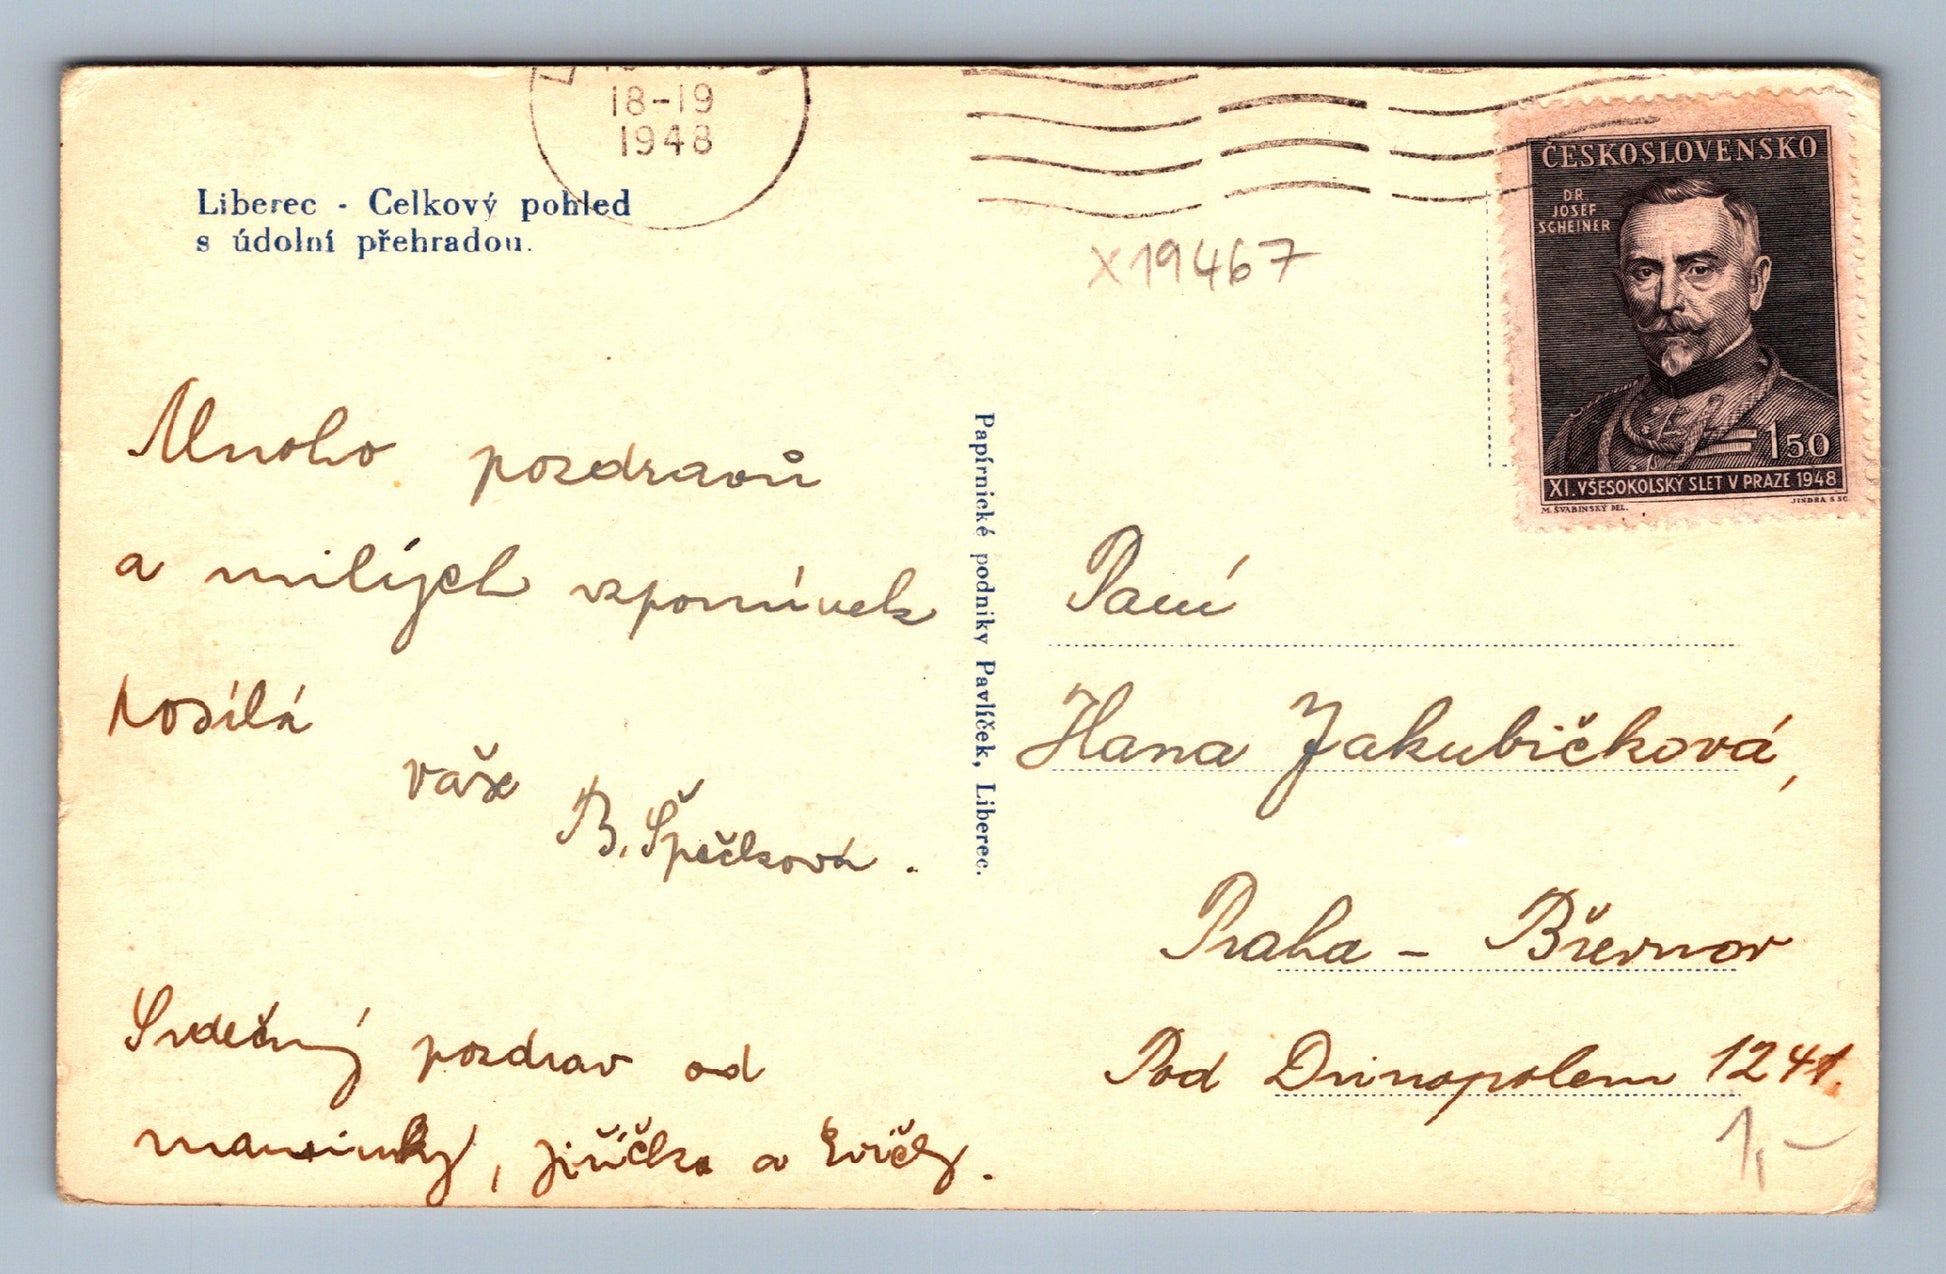 18-19
1948
Liberec - Celkový pohled
s údolní přehradou.
X19467
ČESKOSLOVENSKO
DR.
JOSEF
SCHEINER
150
XI. VŠESOKOLSKÝ SLET V PRAZE 1948
M. ŠVABINSKÝ DEL.
JINDRA S SC
Mnoho pozdravů
a milých vzpomínek
posílá
vaše
B. Špečková.
Srdečný pozdrav od
maminky, Jiříčka a Evičky.
Papírnické podniky Pavlíček, Liberec.
Paní
Hana Jakubičková,
Praha - Břevnov
Pod Drinopolem 1241.
1,-